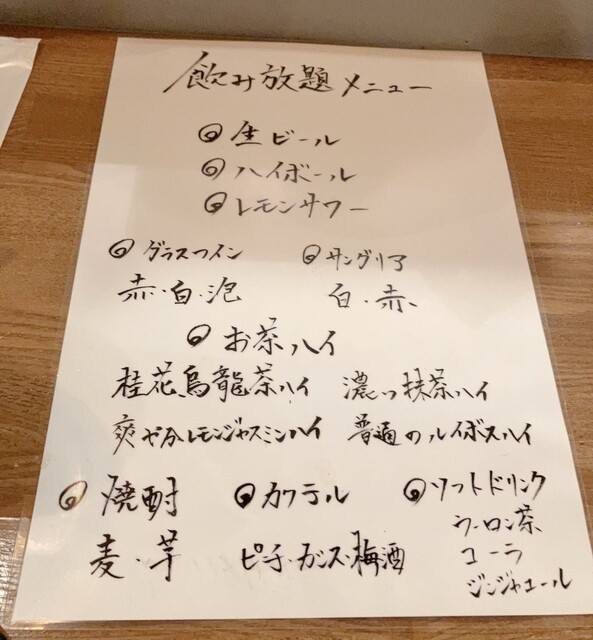 飲み放題メニュー
◎生ビール
◎ハイボール
◎レモンサワー
◎グラスワイン ◎サングリア
赤・白・泡 白・赤
◎お茶ハイ
桂花烏龍茶ハイ 濃い抹茶ハイ
爽やかレモンジャスミンハイ 普通のルイボスハイ
◎焼酎 ◎カクテル ◎ソフトドリンク
麦・芋 ピーチ・カシス・梅酒 ウーロン茶
コーラ
ジンジャエール